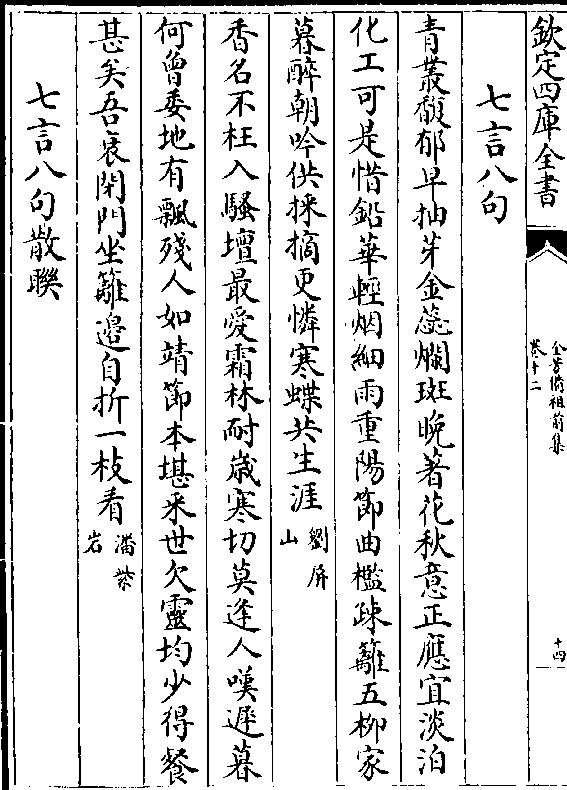 欽定四庫全書
全芳備祖前集
卷十二
十四
七言八句
青叢馥郁早抽芽金蕊斕斑晚著花秋意正應宜淡泊
化工可是惜鉛華輕烟細雨重陽節曲檻疎籬五栁家
暮醉朝吟供採摘更憐寒蝶共生涯劉屏山
香名不枉入騷壇最愛霜林耐歳寒切莫逢人嘆遲暮
何曾委地有飄殘人如靖節本堪采世欠靈均少得餐
甚矣吾衰閉門坐籬邉自折一枝看潘紫岩
七言八句散聨